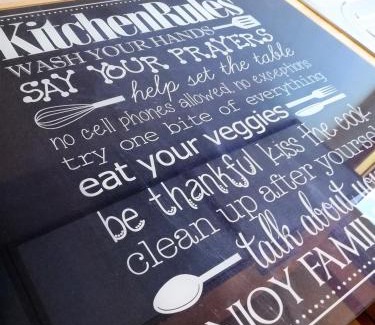 Kitchen Rules
WASH YOUR HANDS
SAY YOUR PRAYERS
help set the table
no cell phones allowed, no exceptions
try one bite of everything
eat your veggies
be thankful kiss the cook
clean up after yourself
talk about you
ENJOY FAMI